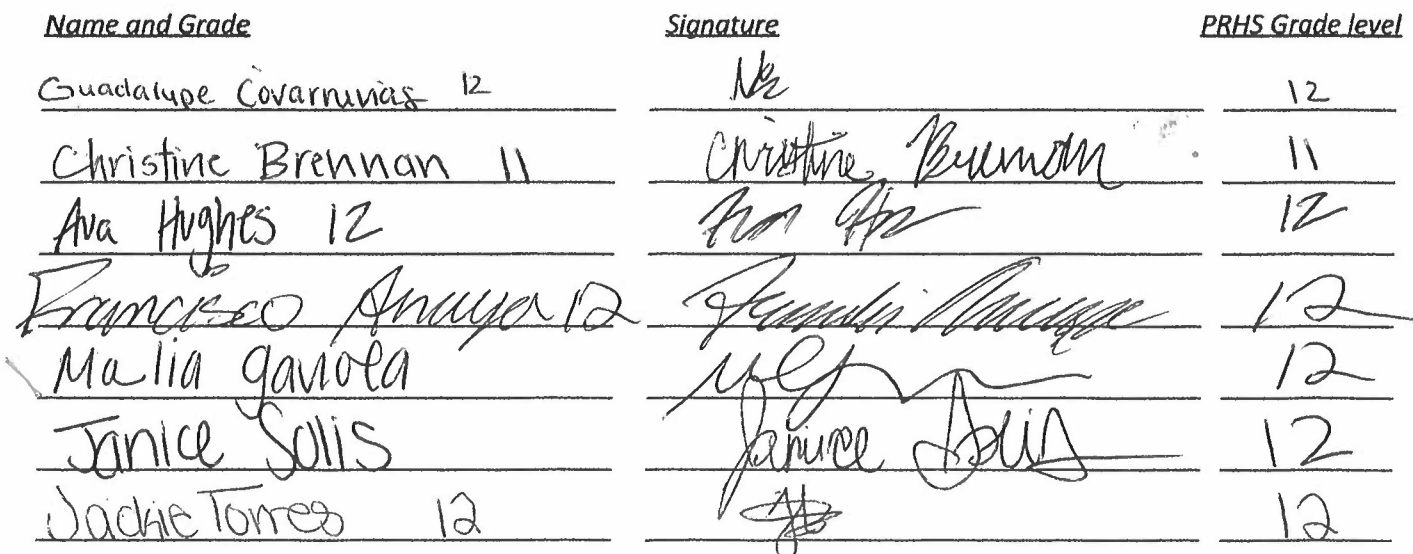 Name and Grade Signature PRHS Grade level
Guadalupe Covarruvias 12 12
Christine Brennan 11 Christine Brennan 11
Ava Hughes 12 12
Francisco Anaya 12 12
Malia 12
Janice Solis Janice Solis 12
Jackie Torres 12 12